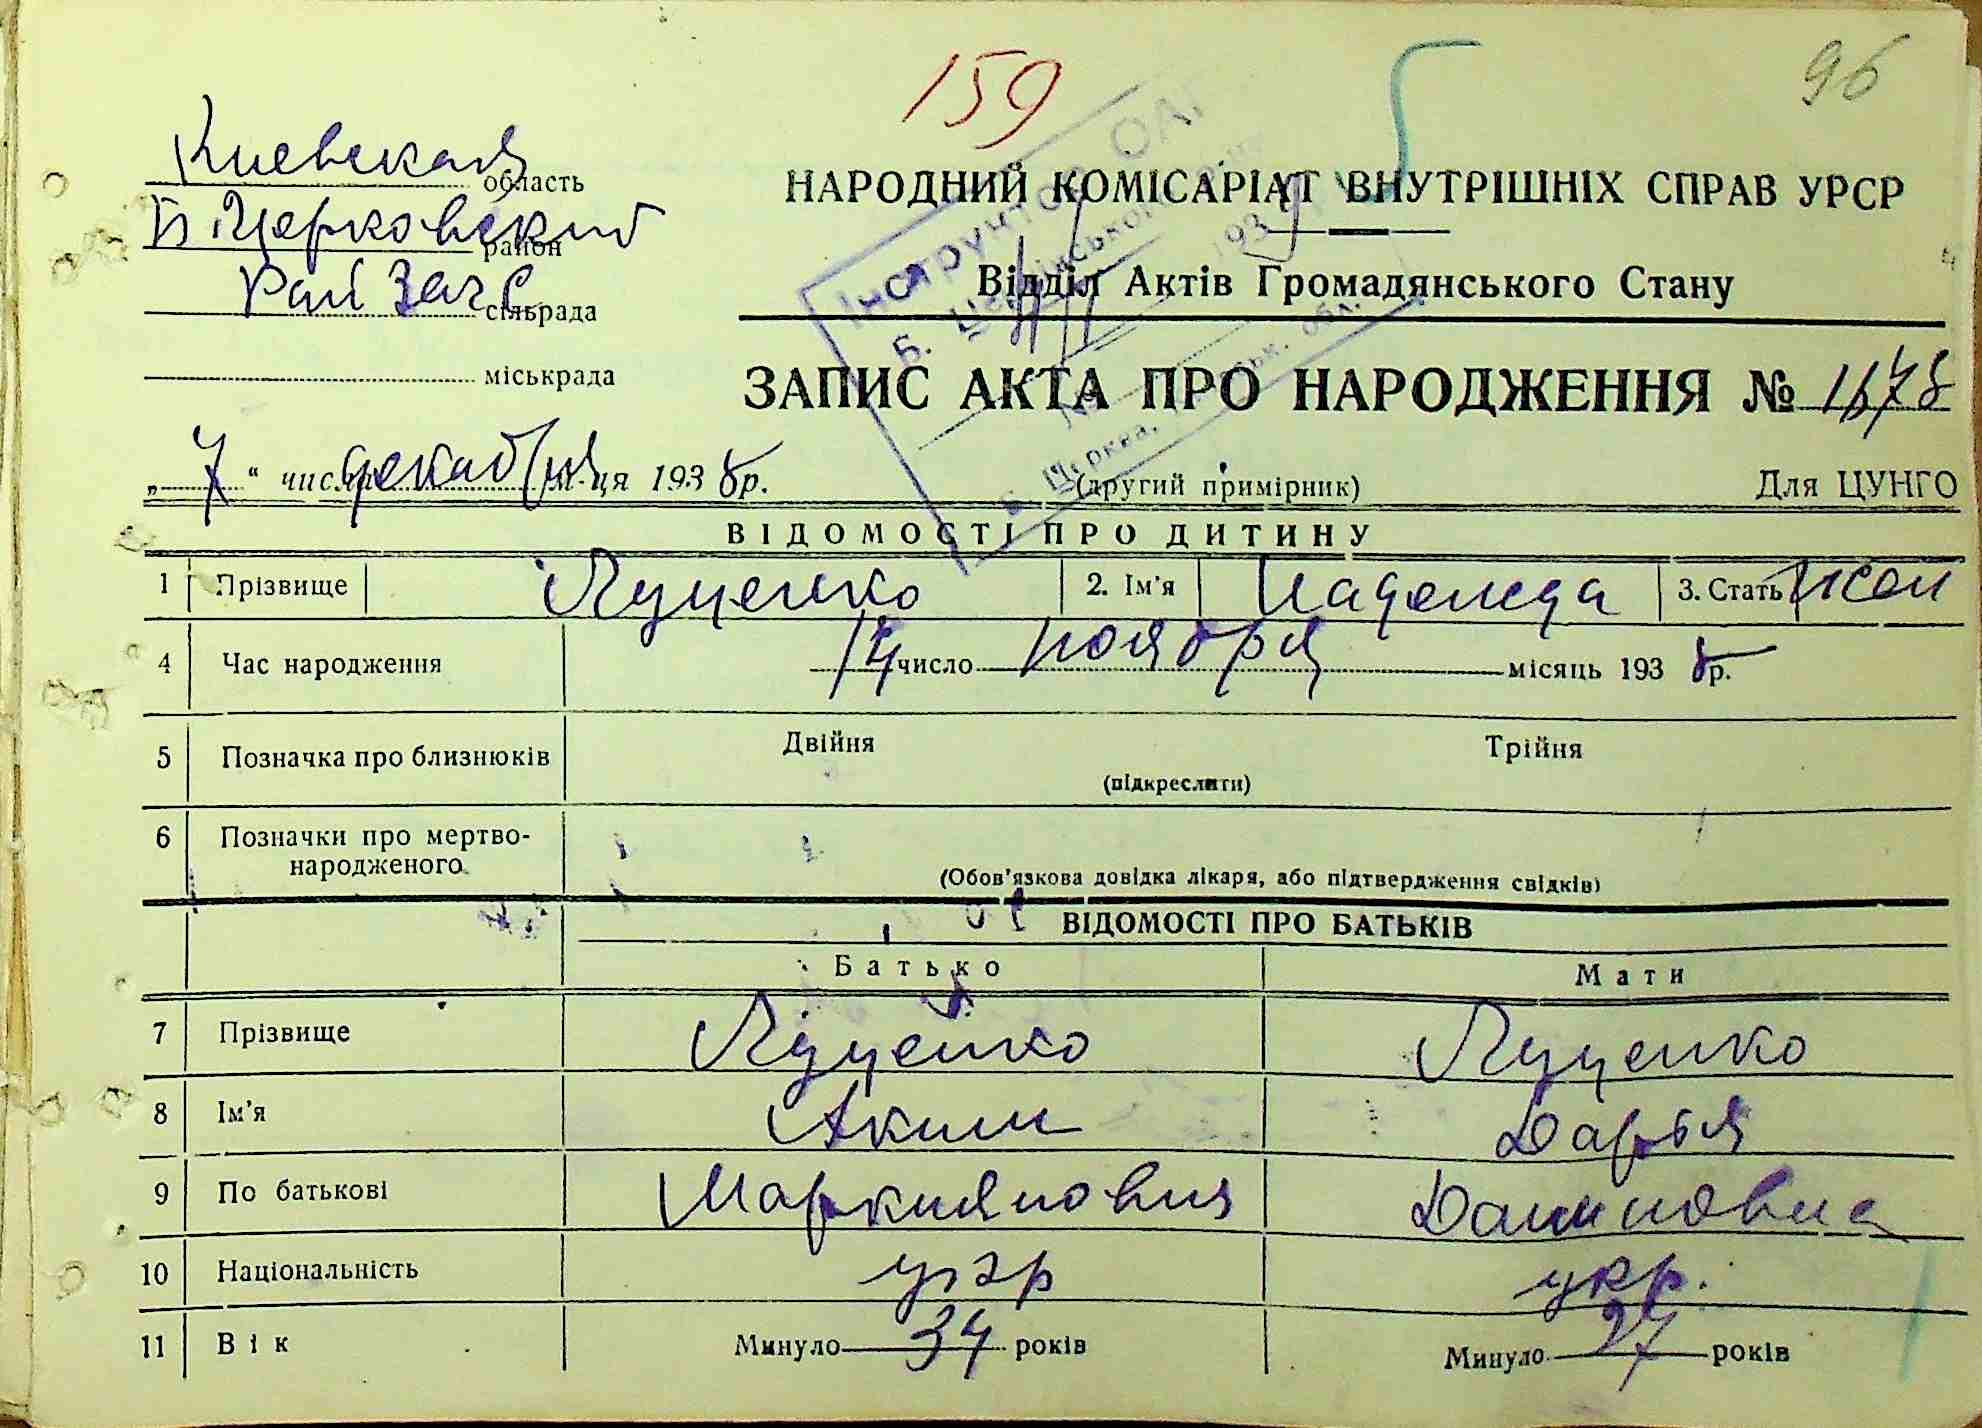 159
96
Киевская область
Б. Церковский район
Рай Загс сільрада
міськрада
НАРОДНИЙ КОМІСАРІАТ ВНУТРІШНІХ СПРАВ УРСР
Відділ Актів Громадянського Стану
ЗАПИС АКТА ПРО НАРОДЖЕННЯ № 1678
„7“ числа декабря м-ця 1938 р.
(другий примірник)
Для ЦУНГО
ВІДОМОСТІ ПРО ДИТИНУ
1 Прізвище Луценко 2. Ім'я Надежда 3. Стать жен
4 Час народження 14 число ноября місяць 1938 р.
5 Позначка про близнюків Двійня Трійня
(підкреслити)
6 Позначки про мертво-
народженого
(Обов'язкова довідка лікаря, або підтвердження свідків)
ВІДОМОСТІ ПРО БАТЬКІВ
Батько Мати
7 Прізвище Луценко Луценко
8 Ім'я Аким Дарья
9 По батькові Маркиянович
10 Національність укр укр.
11 Вік Минуло 34 років Минуло 27 років